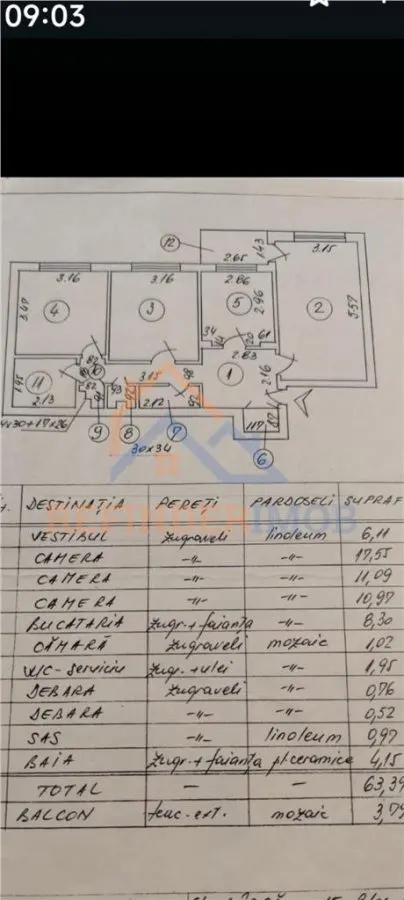 09:03
12
2.65
1.43
3.15
3.16
3.16
2.86
3.47
4
3
5
2.96
2
5.57
34
20
61
2.83
82
1
2.16
11
1.95
3.15
98
2.13
82
93
92
2.12
92
117
87
4x30+17x26
9
8
7
6
30x34
DESTINAȚIA PEREȚI PARDOSELI SUPRAF
VESTIBUL zugraveli linoleum 6,11
CAMERA -"- -"- 17,55
CAMERA -"- -"- 11,09
CAMERA -"- -"- 10,97
BUCATARIA zugr.+faianța -"- 8,30
CĂMARĂ zugraveli mozaic 1,02
W/C-serviciu zugr.+ulei -"- 1,95
DEBARA zugraveli -"- 0,76
DEBARA -"- -"- 0,52
SAS -"- linoleum 0,97
BAIA zugr.+faianța pl.ceramice 4,15
TOTAL — — 63,39
BALCON mozaic 3,79